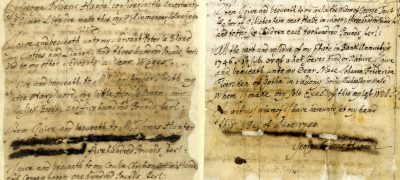 George Frideric Handel considering the Uncertainty
human Life doe make this my Will in manner following
viz.
I give and bequeath unto my Servant Peter le Blond
my Clothes and Linnen, and three hundred Pounds sterl:
and to my other Servants a year Wages.
I give and bequeath to Mr Christopher Smith my
large Harpsicord, my little House Organ, my
Musick Books, and five hundred Pounds sterl:
Item I give and bequeath to Mr James Hunter
five hundred Pounds sterl:
I give and bequeath to my Cousin Christian Gottlieb Handel
of Coppenhagen one hundred Pounds sterl:
Item I give and bequeath to my Cousin
of Giebichenstein near Halle in Saxony three hundred Pounds
and to his Children each two hundred Pounds sterl:
All the next and residue of my Estate in Bank Annuity's
1746. or of what soever Kind or Nature, I
give and bequeath unto my Dear Niece Johanna Friderica
Floerken of Gotha in Saxony
Whom I make my Sole Exec of this my last Will.
In witness Whereof I have hereunto set my hand
this 1 Day of June 1750
George Frideric Handel